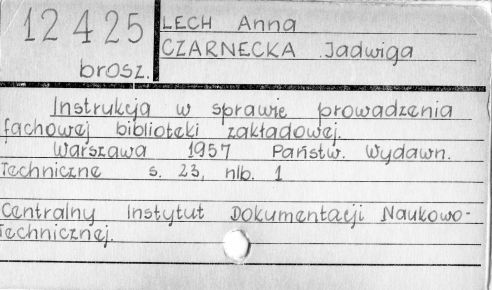 12 425
brosz.
LECH Anna
CZARNECKA Jadwiga
Instrukcja w sprawie prowadzenia
fachowej biblioteki zakładowej.
Warszawa 1957 Państw. Wydawn.
Techniczne s. 23, nlb. 1
Centralny Instytut Dokumentacji Naukowo-
Technicznej.